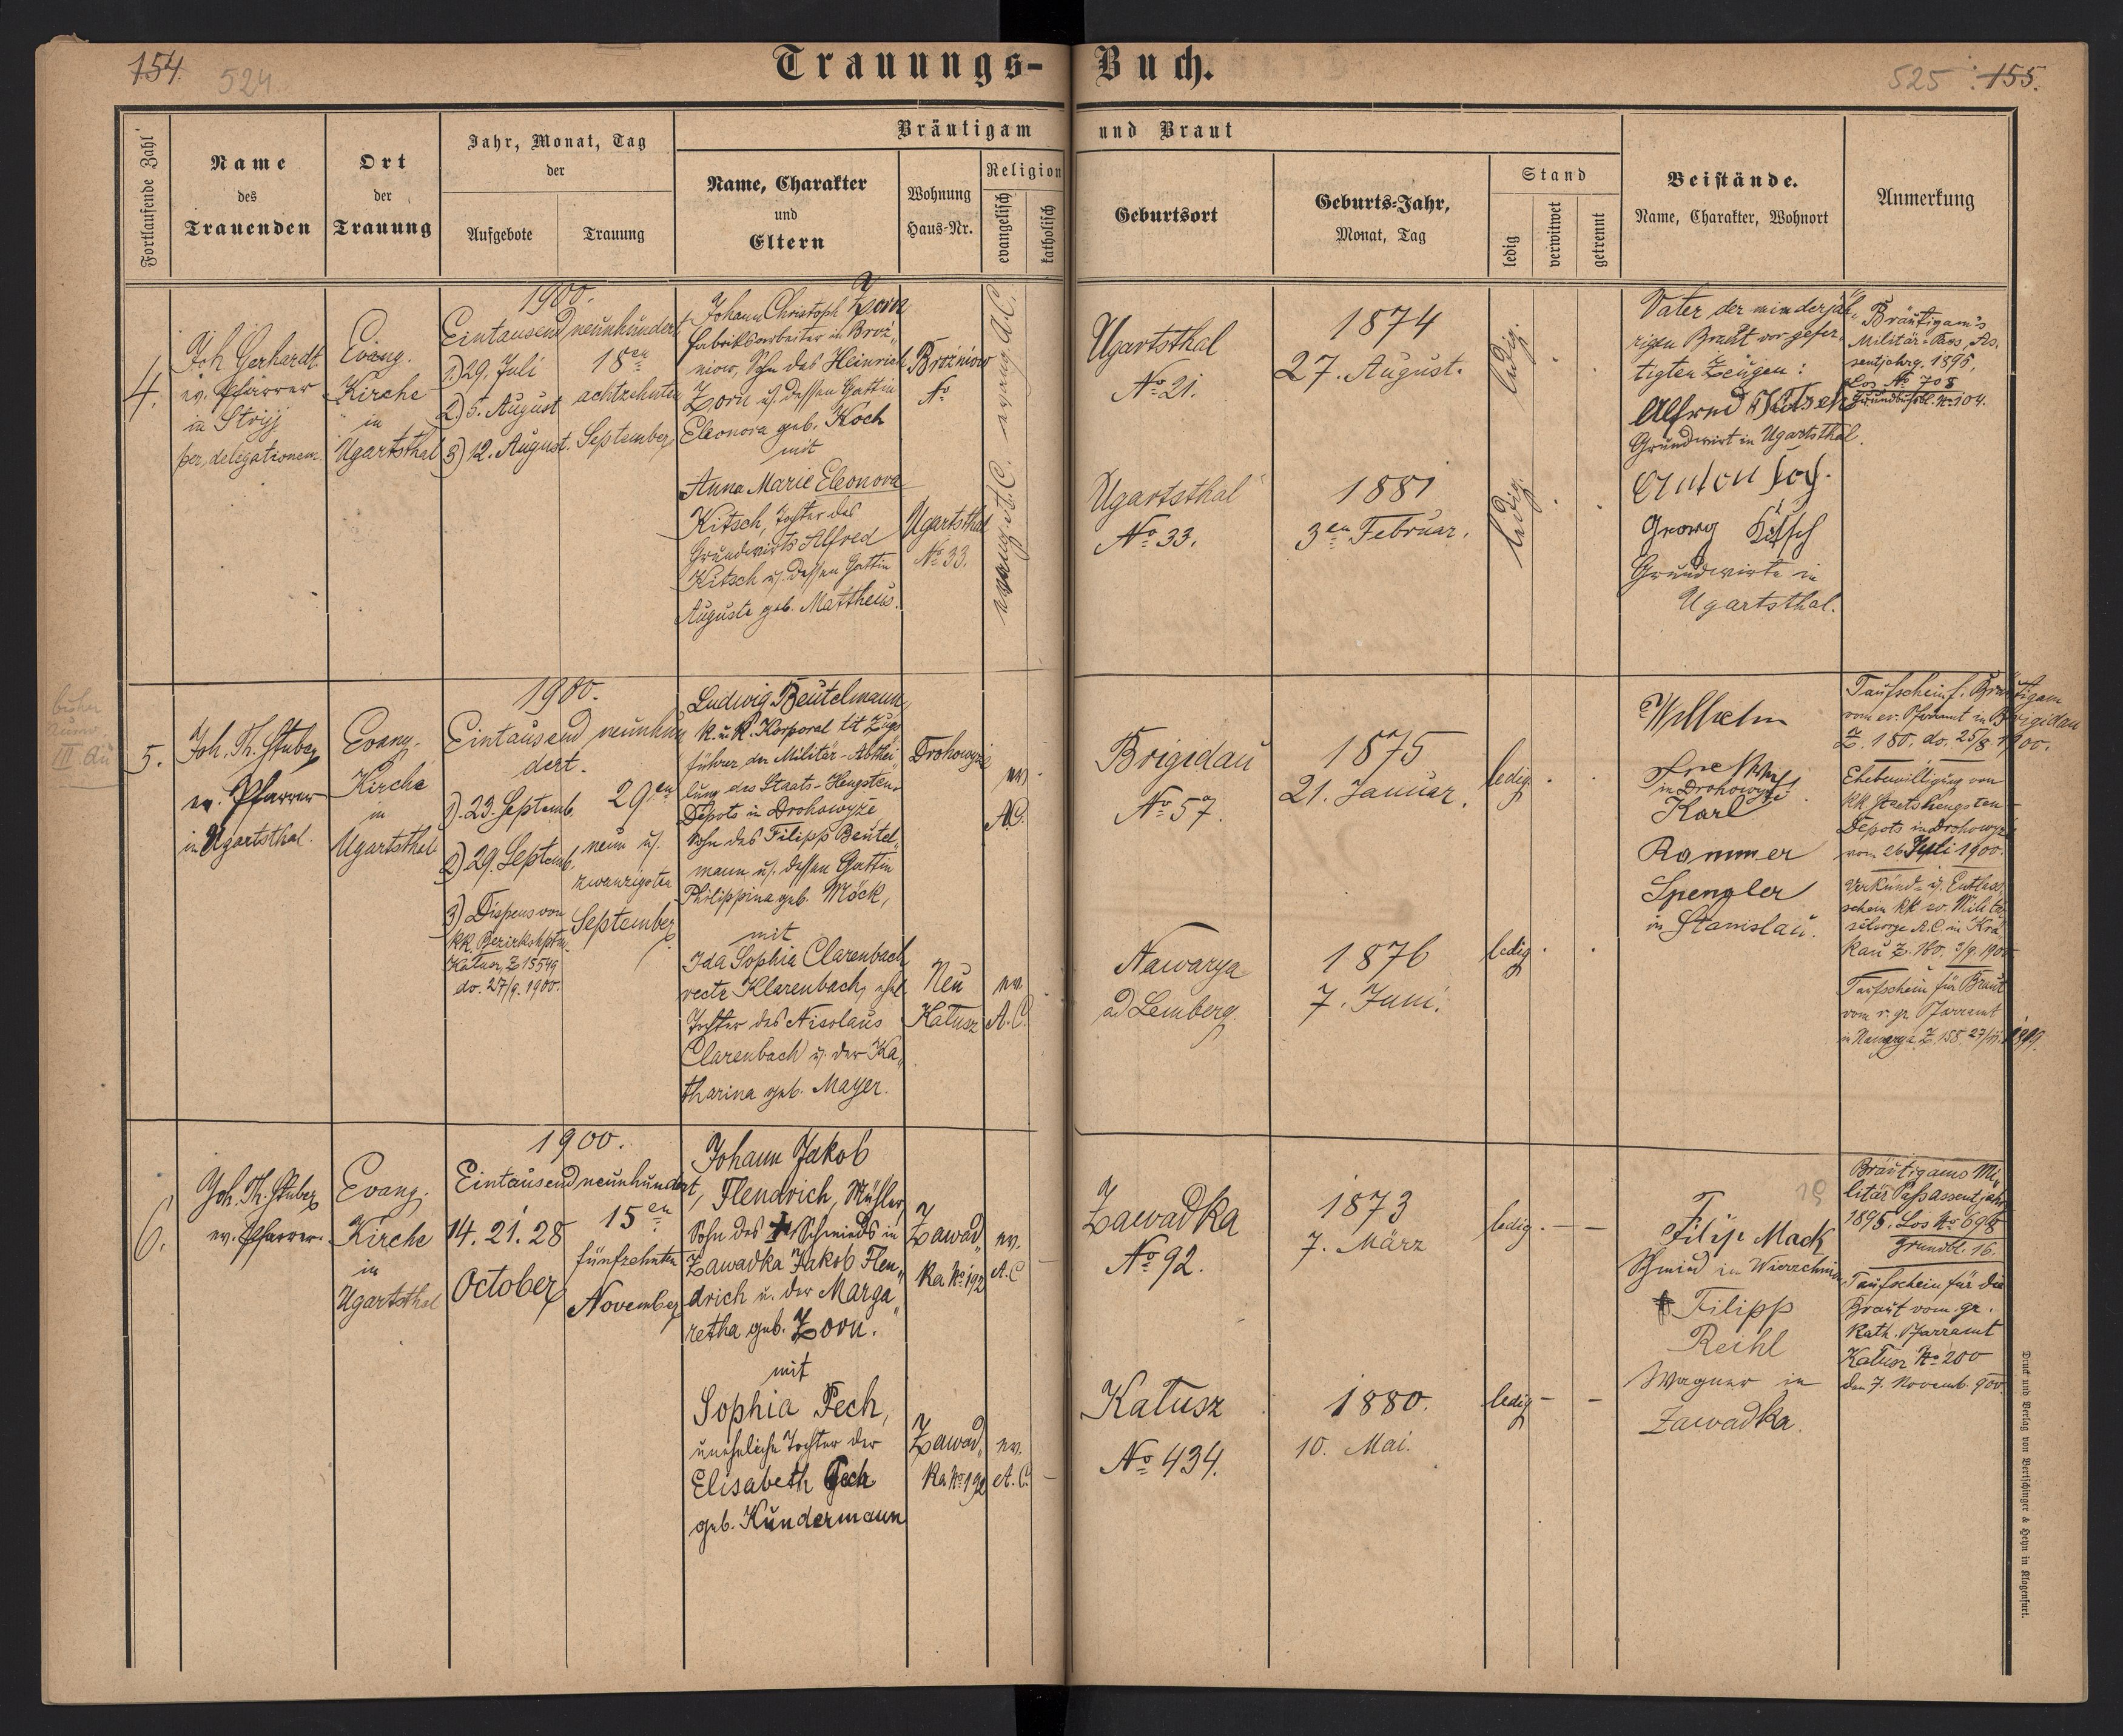 154. 524
Trauungs-Buch.
525 155.
Fortlaufende Zahl
Name
des
Trauenden
Ort
der
Trauung
Jahr, Monat, Tag
der
Aufgebote
Trauung
Bräutigam und Braut
Name, Charakter
und
Eltern
Wohnung
Haus-Nr.
Religion
evangelisch
katholisch
Geburtsort
Geburts-Jahr,
Monat, Tag
Stand
ledig
verwitwet
getrennt
Beistände.
Name, Charakter, Wohnort
Anmerkung
4.
Joh. Gerhardt
ev. Pfarrer
in Stryj
per delegationem
Evang.
Kirche
in
Ugartsthal
1900.
Eintausend neunhundert
1) 29. Juli
2) 5. August
3) 12. August.
18en
achtzehnten
September
Johann Christoph Zorn
Fabriksarbeiter in Broz„
niow, Sohn des Heinrich
Zorn u. dessen Gattin
Eleonora geb. Koch
mit
Anna Marie Eleonora
Kitsch, Tochter des
Grundwirts Alfred
Kitsch u. dessen Gattin
Auguste geb. Mattheus.
Brozniow
No
Ugartsthal
No 33.
evang. A.C.
evang. A.C.
Ugartsthal
No 21.
1874
27. August.
ledig.
Ugartsthal
No 33.
1881
3en Februar.
ledig.
Vater der minderjäh„
rigen Braut vor gefer„
tigten Zeugen:
Alfred Kitsch
Grundwirt in Ugartsthal.
Anton
Georg Kitsch
Grundwirte in
Ugartsthal.
Bräutigam's
Militär-Pass, As„
sentjahrg. 1895,
Los No 708
Grundbuchsbl. No 104.
5.
Joh. Th. Stuber
ev. Pfarrer
in Ugartsthal.
Evang.
Kirche
in
Ugartsthal
1900.
Eintausend neunhun
dert.
1). 23. Septemb.
2) 29. Septemb.
3) Dispens von
kk. Bezirkshptm.
Kałusz, Z 15549
do. 27/9. 1900.
29en
neun u.
zwanzigsten
September
Ludwig Beutelmann,
k. u. k. Korporal tit Zugs
führer der Militär-Abthei
lung des Staats-Hengsten„
Depots in Drohowyże
Sohn des Filipp Beutel„
mann u. dessen Gattin
Philippina geb. Möck,
mit
Ida Sophia Clarenbach
recte Klarenbach, ehel.
Tochter des Nicolaus
Clarenbach u. der Ka„
tharina geb. Mayer.
Drohowyże
ev.
A.C.
Neu
Kałusz
ev.
A.C.
Brigidau
No 57.
1875
21. Januar.
ledig
Nawarya
ad Lemberg.
1876
7. Juni.
ledig
Wilhelm
in Drohowyże
Karl
Rammer
Spengler
in Stanislau.
Taufschein f. Bräutigam
vom ev. Pfarramt in Brigidau
Z. 180. do. 25/8 1900.
Ehebewilligung von
kk Staatshengsten
Depots in Drohowyże
vom 26 Juli 1900.
Verkünd- u. Entlass
schein kk ev. Militär
seelsorge A.C. in Kra
kau Z. 160. /9. 1900
Taufschein für Braut
vom r. gr. Pfarramt
in Nawarya Z. 158. 27/11. 1899.
6.
Joh. Th. Stuber
ev. Pfarrer.
Evang.
Kirche
in
Ugartsthal
1900.
Eintausend neunhundert,
14. 21. 28
October
15en
fünfzehnten
November
Johann Jakob
Flendrich, Müller,
Sohn des Schmieds in
Zawadka Jakob Flen„
drich u. der Marga„
retha geb. Zorn.
mit
Sophia Pech,
uneheliche Tochter der
Elisabeth Pech
geb. Kundermann
Zawad„
ka No 192
ev.
A.C
Zawad„
ka No 192
ev.
A.C.
Zawadka
No 92.
1873
7. März
ledig
Kałusz
No 434.
1880.
10. Mai.
ledig
Filip Mack
Schmied in
Filipp
Reihl
Wagner in
Zawadka.
Bräutigams Mi„
litär Pass assentjahr
1895. Los No 698
Grundbl. 16.
Taufschein für die
Braut vom gr.
kath. Pfarramt
Kałusz No 200
den 7. Novemb. 900
Druck und Verlag von Bertschinger & Heyn in Klagenfurt.